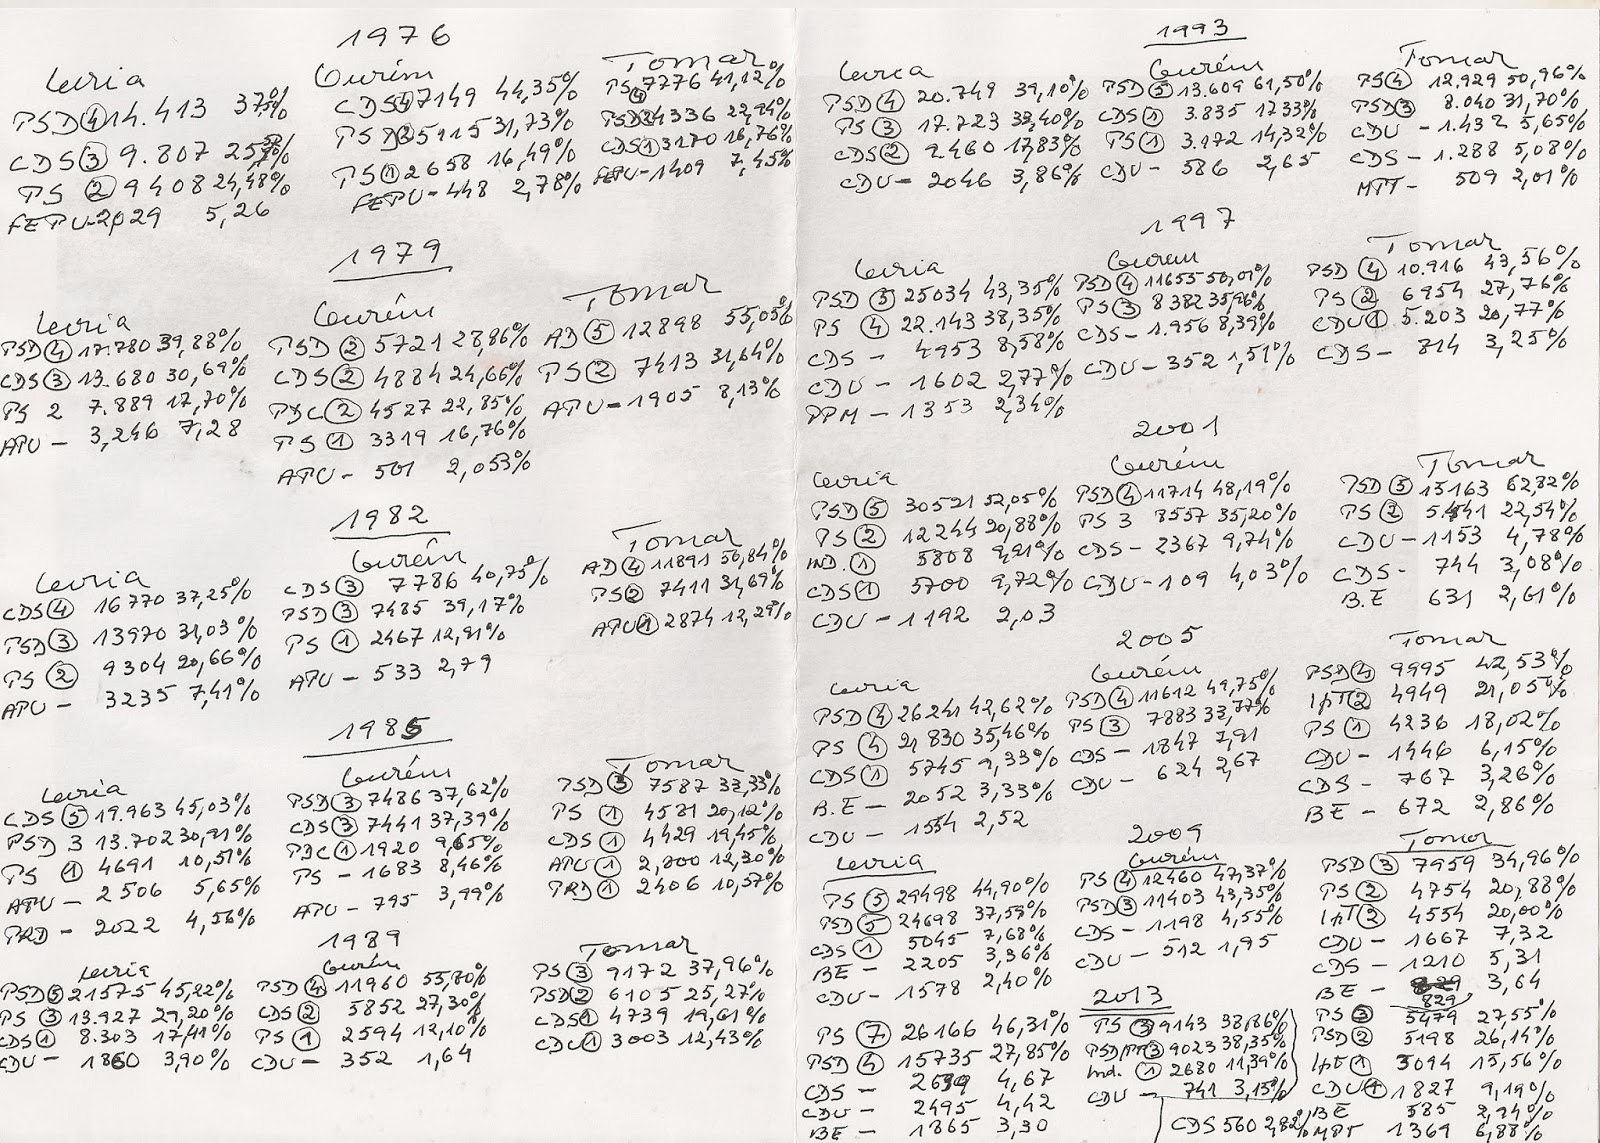 1976
Leiria
PSD ④ 14.413 37,51%
CDS ③ 9.807 25,52%
PS ② 9408 24,48%
FEPU - 2029 5,26
Ourém
CDS ④ 7149 44,35%
PSD ② 5115 31,73%
PS ① 2658 16,49%
FEPU - 448 2,78%
Tomar
PS ④ 7776 41,12%
PSD ② 4336 22,94%
CDS ① 3170 16,76%
FEPU - 1409 7,45%
1979
Leiria
PSD ④ 17.780 39,88%
CDS ③ 13.680 30,69%
PS 2 7.889 17,70%
APU - 3,246 7,28
Ourém
PSD ② 5721 28,86%
CDS ② 4884 24,66%
PDC ② 4527 22,85%
PS ① 3319 16,76%
APU - 501 2,053%
Tomar
AD ⑤ 12898 55,05%
PS ② 7413 31,64%
APU - 1905 8,13%
1982
Leiria
CDS ④ 16770 37,25%
PSD ③ 13970 31,03%
PS ② 9304 20,66%
APU - 3235 7,41%
Ourém
CDS ③ 7786 40,75%
PSD ③ 7485 39,17%
PS ① 2467 12,91%
APU - 533 2,79
Tomar
AD ④ 11891 50,84%
PS ② 7411 31,69%
APU ① 2874 12,29%
1985
Leiria
CDS ⑤ 19.963 45,03%
PSD 3 13.702 30,91%
PS ① 4691 10,51%
APU - 2506 5,65%
PRD - 2022 4,56%
Ourém
PSD ③ 7486 37,62%
CDS ③ 7441 37,39%
PDC ① 1920 9,65%
PS - 1683 8,46%
APU - 795 3,99%
Tomar
PSD ③ 7587 33,33%
PS ① 4581 20,12%
CDS ① 4429 19,45%
APU ① 2,800 12,30%
PRD ① 2406 10,57%
1989
Leiria
PSD ⑤ 21575 45,22%
PS ③ 13.927 29,20%
CDS ① 8.303 17,41%
CDU - 1860 3,90%
Ourém
PSD ④ 11960 55,80%
CDS ② 5852 27,30%
PS ① 2594 12,10%
CDU - 352 1,64
Tomar
PS ③ 9172 37,96%
PSD ② 6105 25,27%
CDS ① 4739 19,61%
CDU ① 3003 12,43%
1993
Leiria
PSD ④ 20.749 39,10%
PS ③ 17.723 33,40%
CDS ② 9460 17,83%
CDU - 2046 3,86%
Ourém
PSD ⑤ 13.609 61,50%
CDS ① 3.835 17,33%
PS ① 3.172 14,32%
CDU - 586 2,65
Tomar
PS ④ 12.929 50,96%
PSD ③ 8.040 31,70%
CDU - 1.432 5,65%
CDS - 1.288 5,08%
MPT - 509 2,01%
1997
Leiria
PSD ⑤ 25034 43,35%
PS ④ 22.143 38,35%
CDS - 4953 8,58%
CDU - 1602 2,77%
PPM - 1353 2,34%
Ourém
PSD ④ 11655 50,01%
PS ③ 8382 35,96%
CDS - 1.956 8,39%
CDU - 352 1,51%
Tomar
PSD ④ 10.916 43,56%
PS ② 6954 27,76%
CDU ① 5.203 20,77%
CDS - 814 3,25%
2001
Leiria
PSD ⑤ 30521 52,05%
PS ② 12244 20,88%
IND. ① 5808 9,91%
CDS ① 5700 9,72%
CDU - 1192 2,03
Ourém
PSD ④ 11714 48,19%
PS 3 8557 35,20%
CDS - 2367 9,74%
CDU - 109 4,03%
Tomar
PSD ⑤ 15163 62,82%
PS ② 5441 22,54%
CDU - 1153 4,78%
CDS - 744 3,08%
B.E 631 2,61%
2005
Leiria
PSD ④ 26241 42,62%
PS ④ 21830 35,46%
CDS ① 5745 9,33%
B.E - 2052 3,33%
CDU - 1554 2,52
Ourém
PSD ④ 11612 49,75%
PS ③ 7883 33,77%
CDS - 1847 7,91
CDU - 624 2,67
Tomar
PSD ④ 9995 42,53%
IpT ② 4949 21,05%
PS ① 4236 18,02%
CDU - 1446 6,15%
CDS - 767 3,26%
BE - 672 2,86%
2009
Leiria
PS ⑤ 29498 44,90%
PSD ⑤ 24698 37,59%
CDS ① 5045 7,68%
BE - 2205 3,36%
CDU - 1578 2,40%
Ourém
PS ④ 12460 47,37%
PSD ③ 11403 43,35%
CDS - 1198 4,55%
CDU - 512 1,95
Tomar
PSD ③ 7959 34,96%
PS ② 4754 20,88%
IpT ② 4554 20,00%
CDU - 1667 7,32
CDS - 1210 5,31
BE - 829 3,64
2013
PS ⑦ 26166 46,31%
PSD ④ 15735 27,85%
CDS - 4,67
CDU - 2495 4,42
BE - 1865 3,30
PS ③ 9143 38,86%
PSD/PPM ③ 9023 38,35%
Ind. ① 2680 11,39%
CDU - 741 3,15%
CDS 560 2,82%
PS ③ 5479 27,55%
PSD ② 5198 26,14%
IpT ① 3094 15,56%
CDU ① 1827 9,19%
BE 585 2,94%
MPT 1369 6,88%